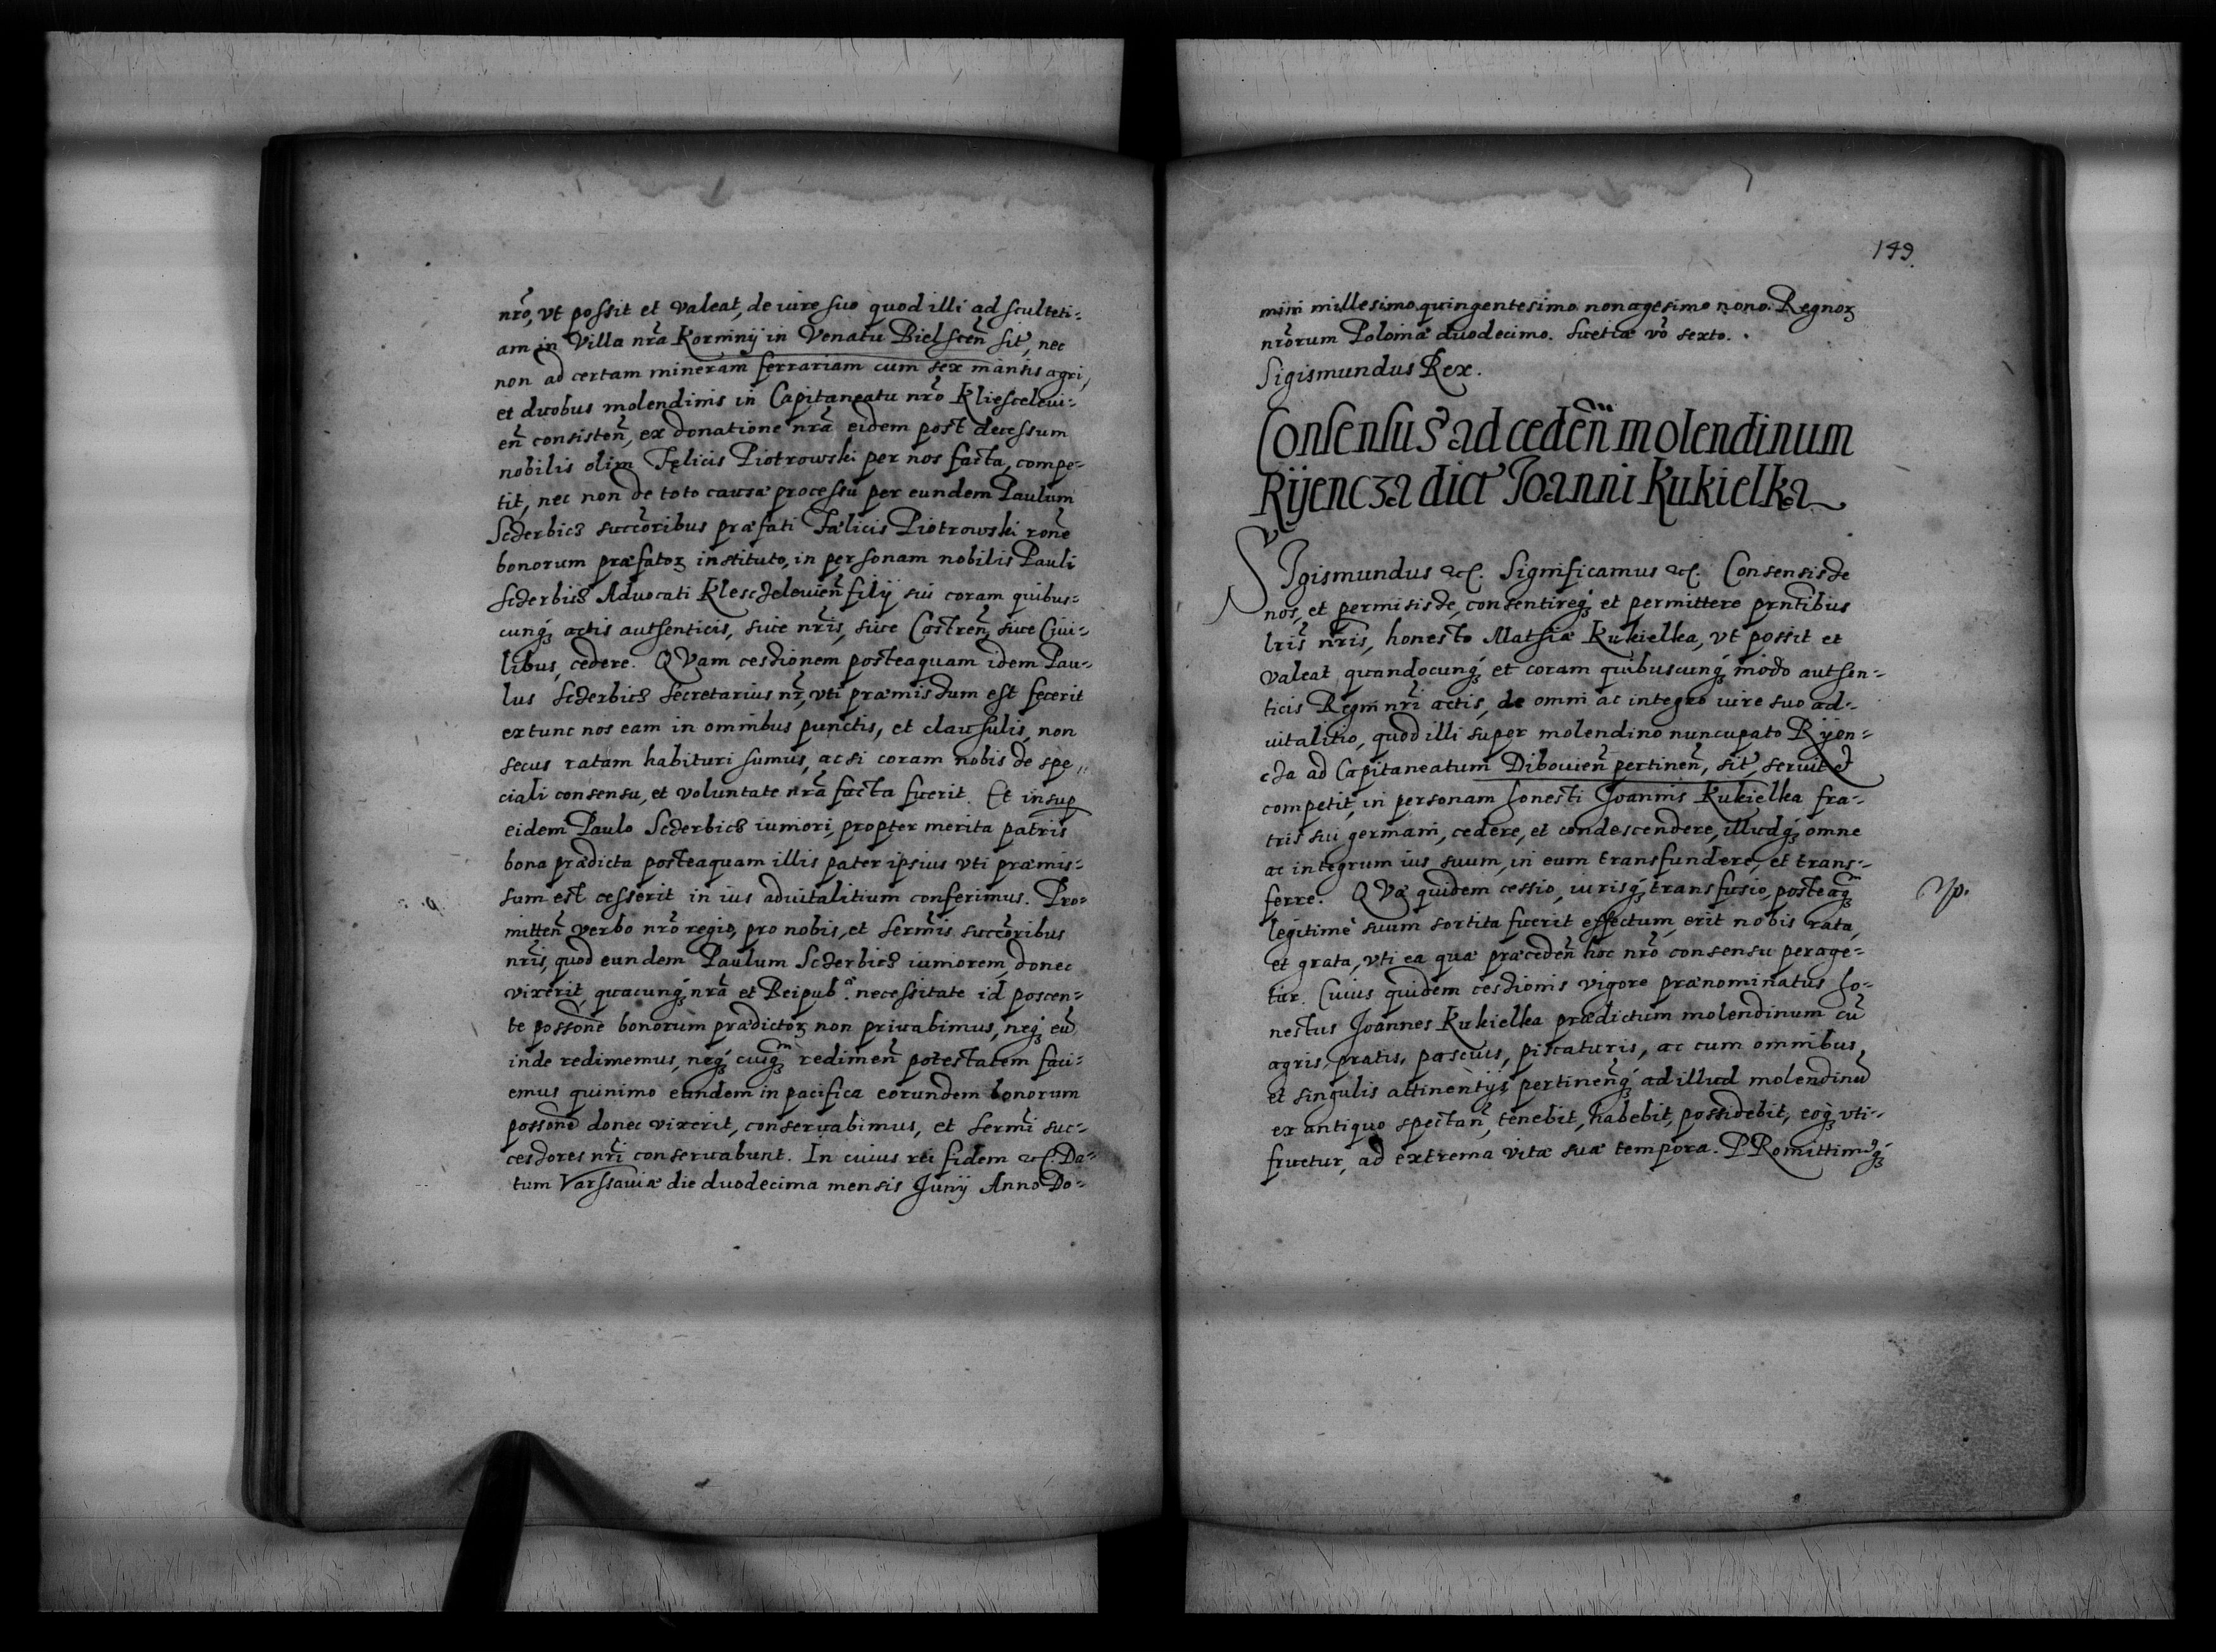 nr̃o, vt possit et valeat, de iure suo quod illi ad sculteti-
am in Villa nr̃a Korminÿ in Venatu Bielscen̄ sit, nec
non ad certam mineram ferrariam cum sex mansis agri,
et duobus molendinis in Capitaneatu nr̃o Kliescelevi-
en̄ consisten̄, ex donatione nr̃a eidem post decessum
nobilis olim Fęlicis Piotrowski per nos facta, compe-
tit, nec non de toto causæ processu per eundem Paulum
Sczerbicz succōribus præfati Fælicis Piotrowski rōne
bonorum præfatoꝝ instituto, in personam nobilis Pauli
Sczerbicz Advocati Klesczelouien̄ filÿ sui coram quibus-
cunqꝫ actis authenticis, siue nr̃is, siue Castren̄, siue Ciui-
libus, cedere. QVam cessionem posteaquam idem Pau-
lus Sczerbicz Secretarius nr̃, vti præmissum est fecerit
extunc nos eam in omnibus punctis, et clausulis, non
secus ratam habituri sumus, ac si coram nobis de spe-
ciali consensu, et voluntate nr̃a facta fuerit. Et insup
eidem Paulo Sczerbicz iuniori, propter merita patris
bona prædicta posteaquam illis pater ipsius vti præmis-
sum est cesserit in ius aduitalitium conferimus. Pro-
mitten̄ verbo nr̃o regio, pro nobis, et Serm̄is succōribus
nr̃is, quod eundem Paulum Sczerbicz iuniorem, donec
vixerit, quacunqꝫ nr̃a et Reipub.ᵃ necessitate id poscen-
te possōne bonorum prædictoꝝ non priuabimus, neqꝫ eū
inde redimemus, neqꝫ cuiqꝫᵐ redimen̄ potestatem faci-
emus quinimo eundem in pacifica eorundem bonorum
possōne donec vixerit, conseruabimus, et Serm̄i suc-
cessores nr̃i conseruabunt. In cuius rei fidem etc. Da-
tum Varssauiæ die duodecima mensis Junÿ Anno Do-
149.
mini millesimo quingentesimo nonagesimo nono. Regnoꝝ
nr̃orum Poloniæ duodecimo. Suetiæ vō sexto.
Sigismundus Rex.
Consensus ad ceden̄ molendinum
Rÿencza dict Joanni Kukielka
SIgismundus etc. Significamus etc. Consensisse
nos, et permisisse, consentireqꝫ et permittere prn̄tibus
lr̃is nr̃is, honesto Mathiæ Kukielka, vt possit et
valeat quandocunqꝫ et coram quibuscunqꝫ modo authen-
ticis Regni nr̃i actis, de omni ac integro iure suo ad-
uitalitio, quod illi super molendino nuncupato Rÿen-
cza ad Capitaneatum Dibouien̄ pertinen̄, sit, seruit et
competit, in personam honesti Joannis Kukielka fra-
tris sui germani, cedere, et condescendere, illudqꝫ omne
ac integrum ius suum, in eum transfundere, et trans-
ferre. QVæ quidem cessio, iurisqꝫ transfusio, posteaqꝫᵐ
legitimè suum sortita fuerit effectum, erit nobis rata,
et grata, vti ea quæ præceden̄ hoc nr̃o consensu perage-
tur. Cuius quidem cessionis vigore prænominatus ho-
nestus Joannes Kukielka prædictum molendinum cū
agris, pratis, pascuis, piscaturis, ac cum omnibus
et singulis attinentÿs pertinen̄qꝫ ad illud molendinū
ex antiquo spectan̄, tenebit, habebit, possidebit, eoqꝫ vti-
fruetur, ad extrema vitæ suæ tempora. PRomittimusqꝫ